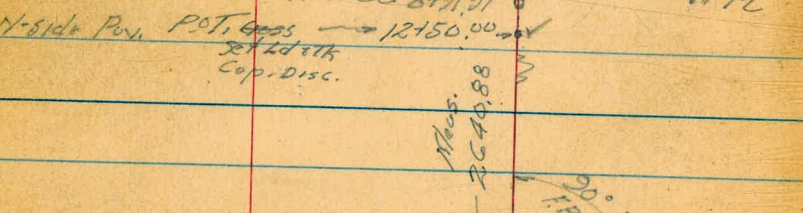 N-side Pav. P.O.T. Cross → 12+50.00
Set Ld & Tk
Cop. Disc.
Meas.
2640.88
90°